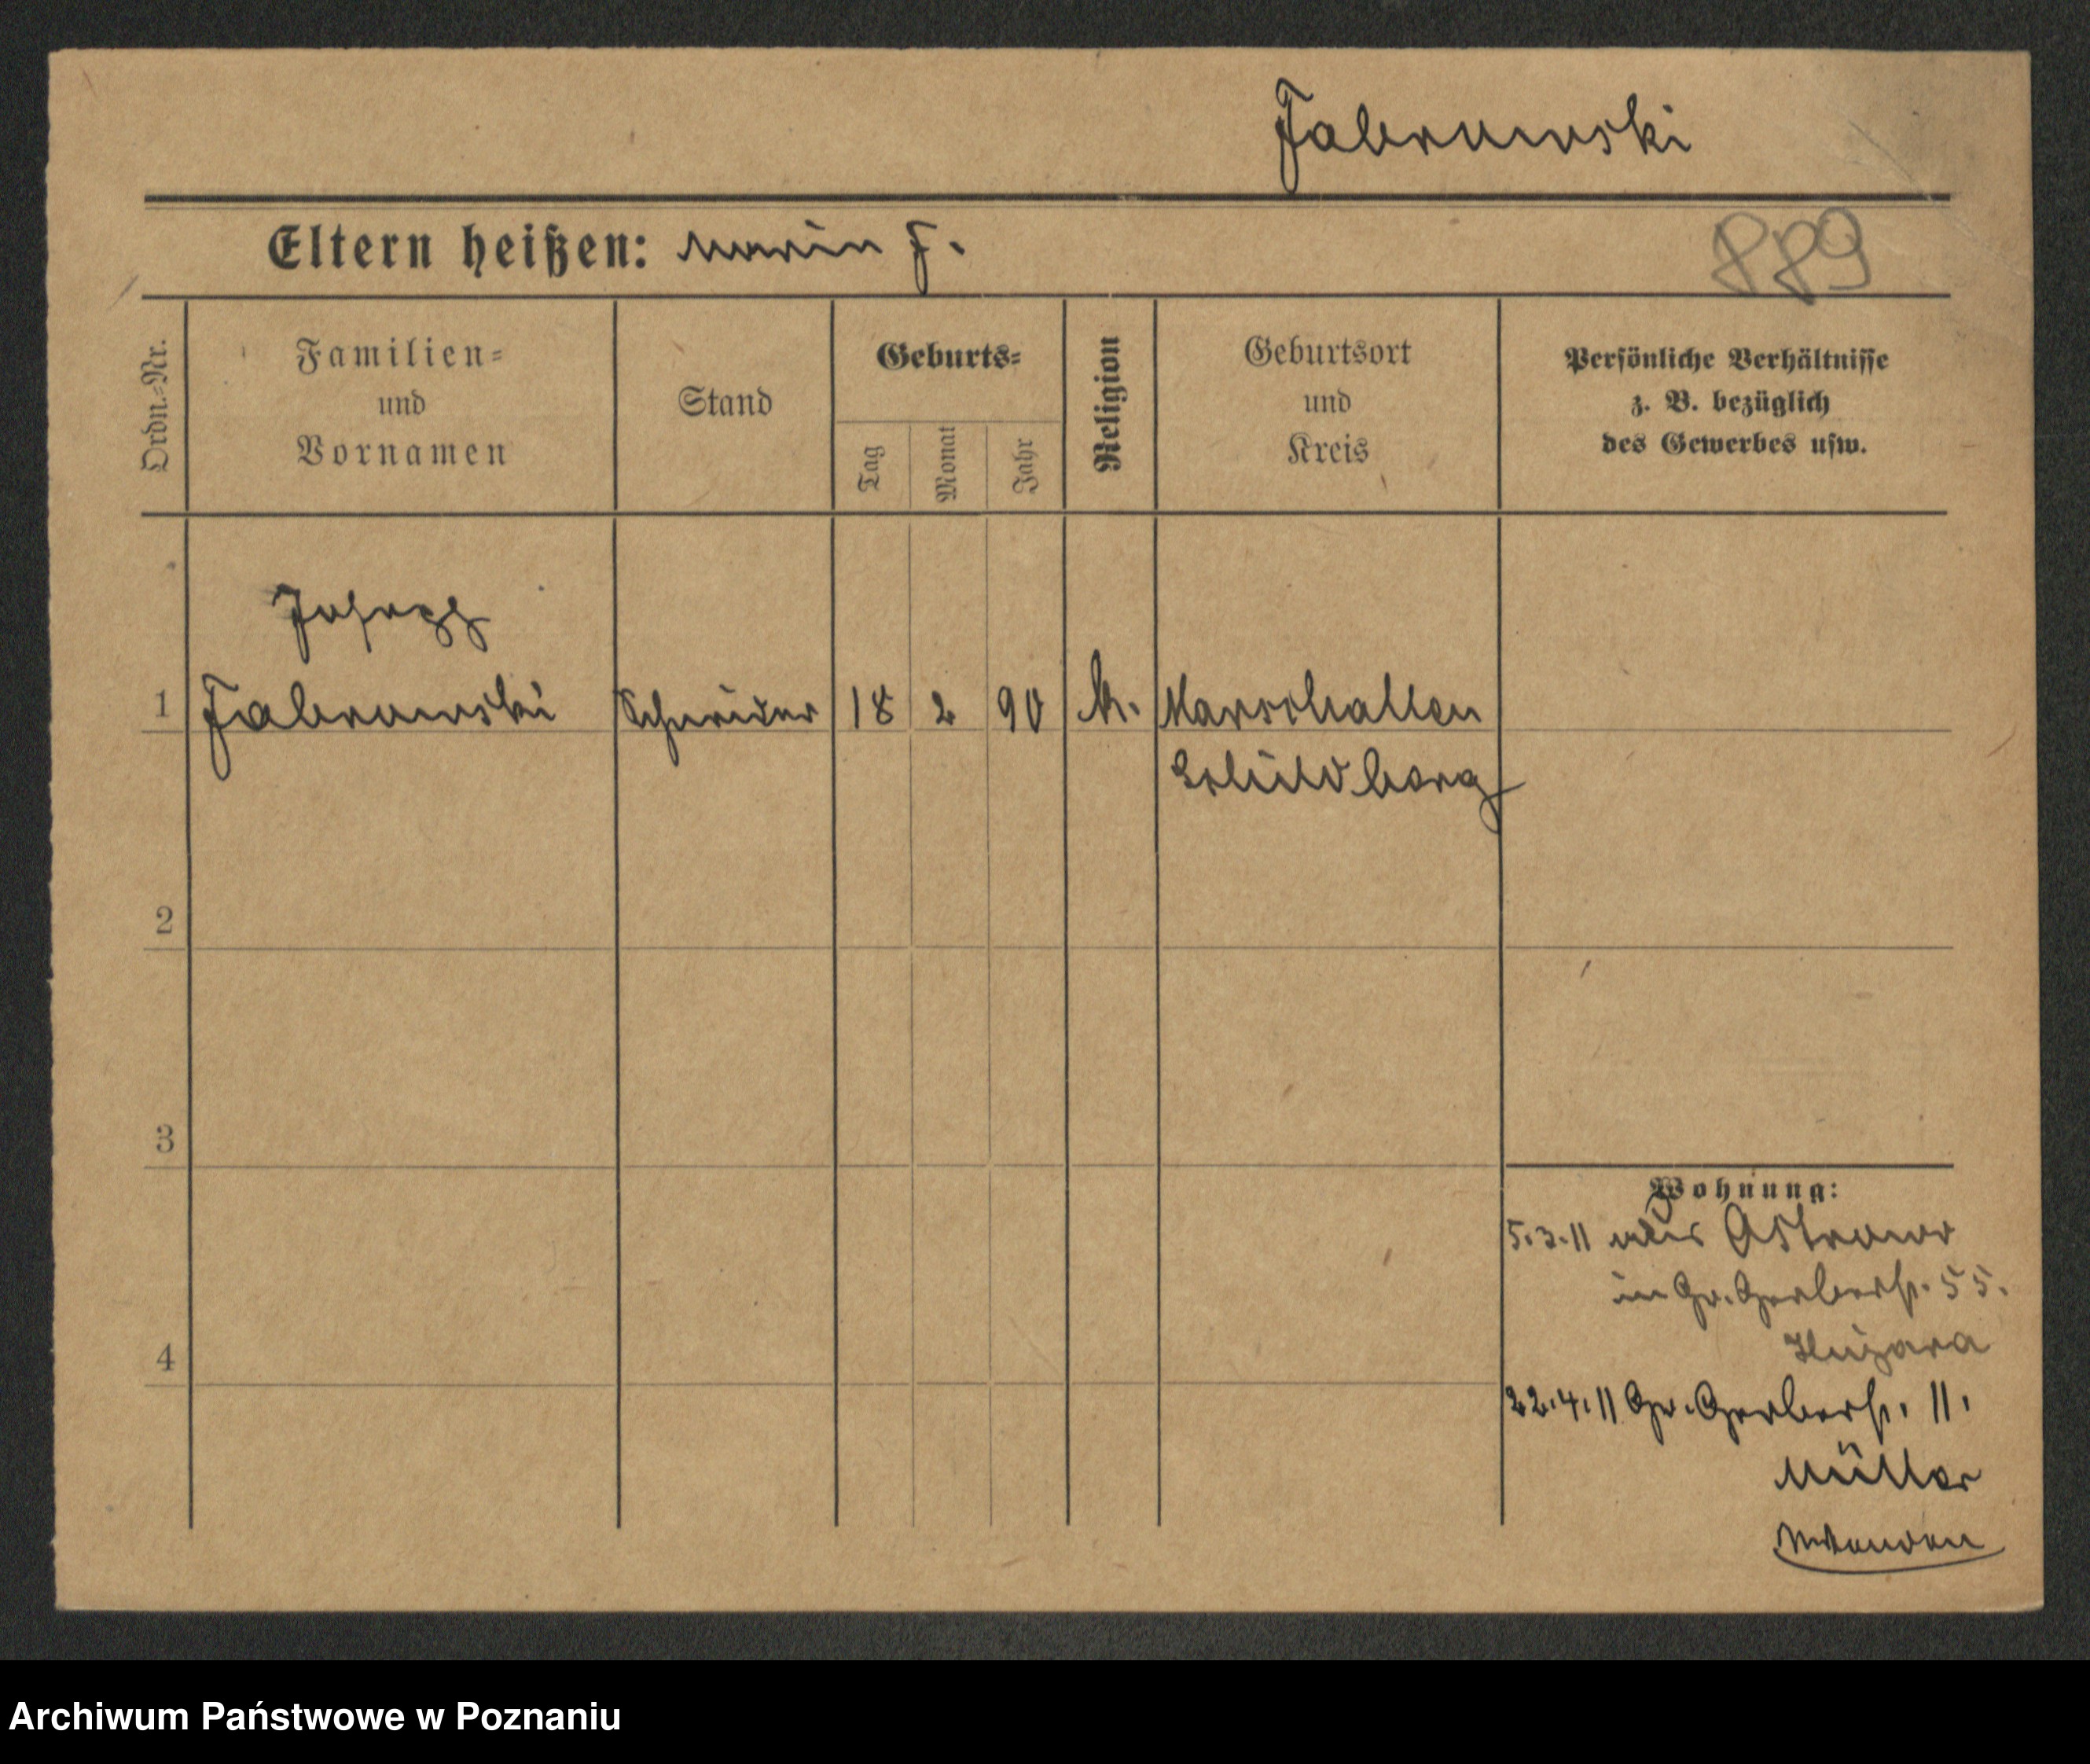 Fabrowski
Eltern heißen: Maria F.
889
Ordn.-Nr.
Familien-
und
Vornamen
Stand
Geburts-
Tag
Monat
Jahr
Religion
Geburtsort
und
Kreis
Persönliche Verhältnisse
z. B. bezüglich
des Gewerbes usw.
Joseph
1 Fabrowski Schneider 18 2 90 k. Marschallen
Schildberg
2
3
4
Wohnung:
5.3.11 aus Ostrowo
in Gr. Gerberstr. 55.
22.4.11 Gr. Gerberstr. 11.
Müller
Archiwum Państwowe w Poznaniu